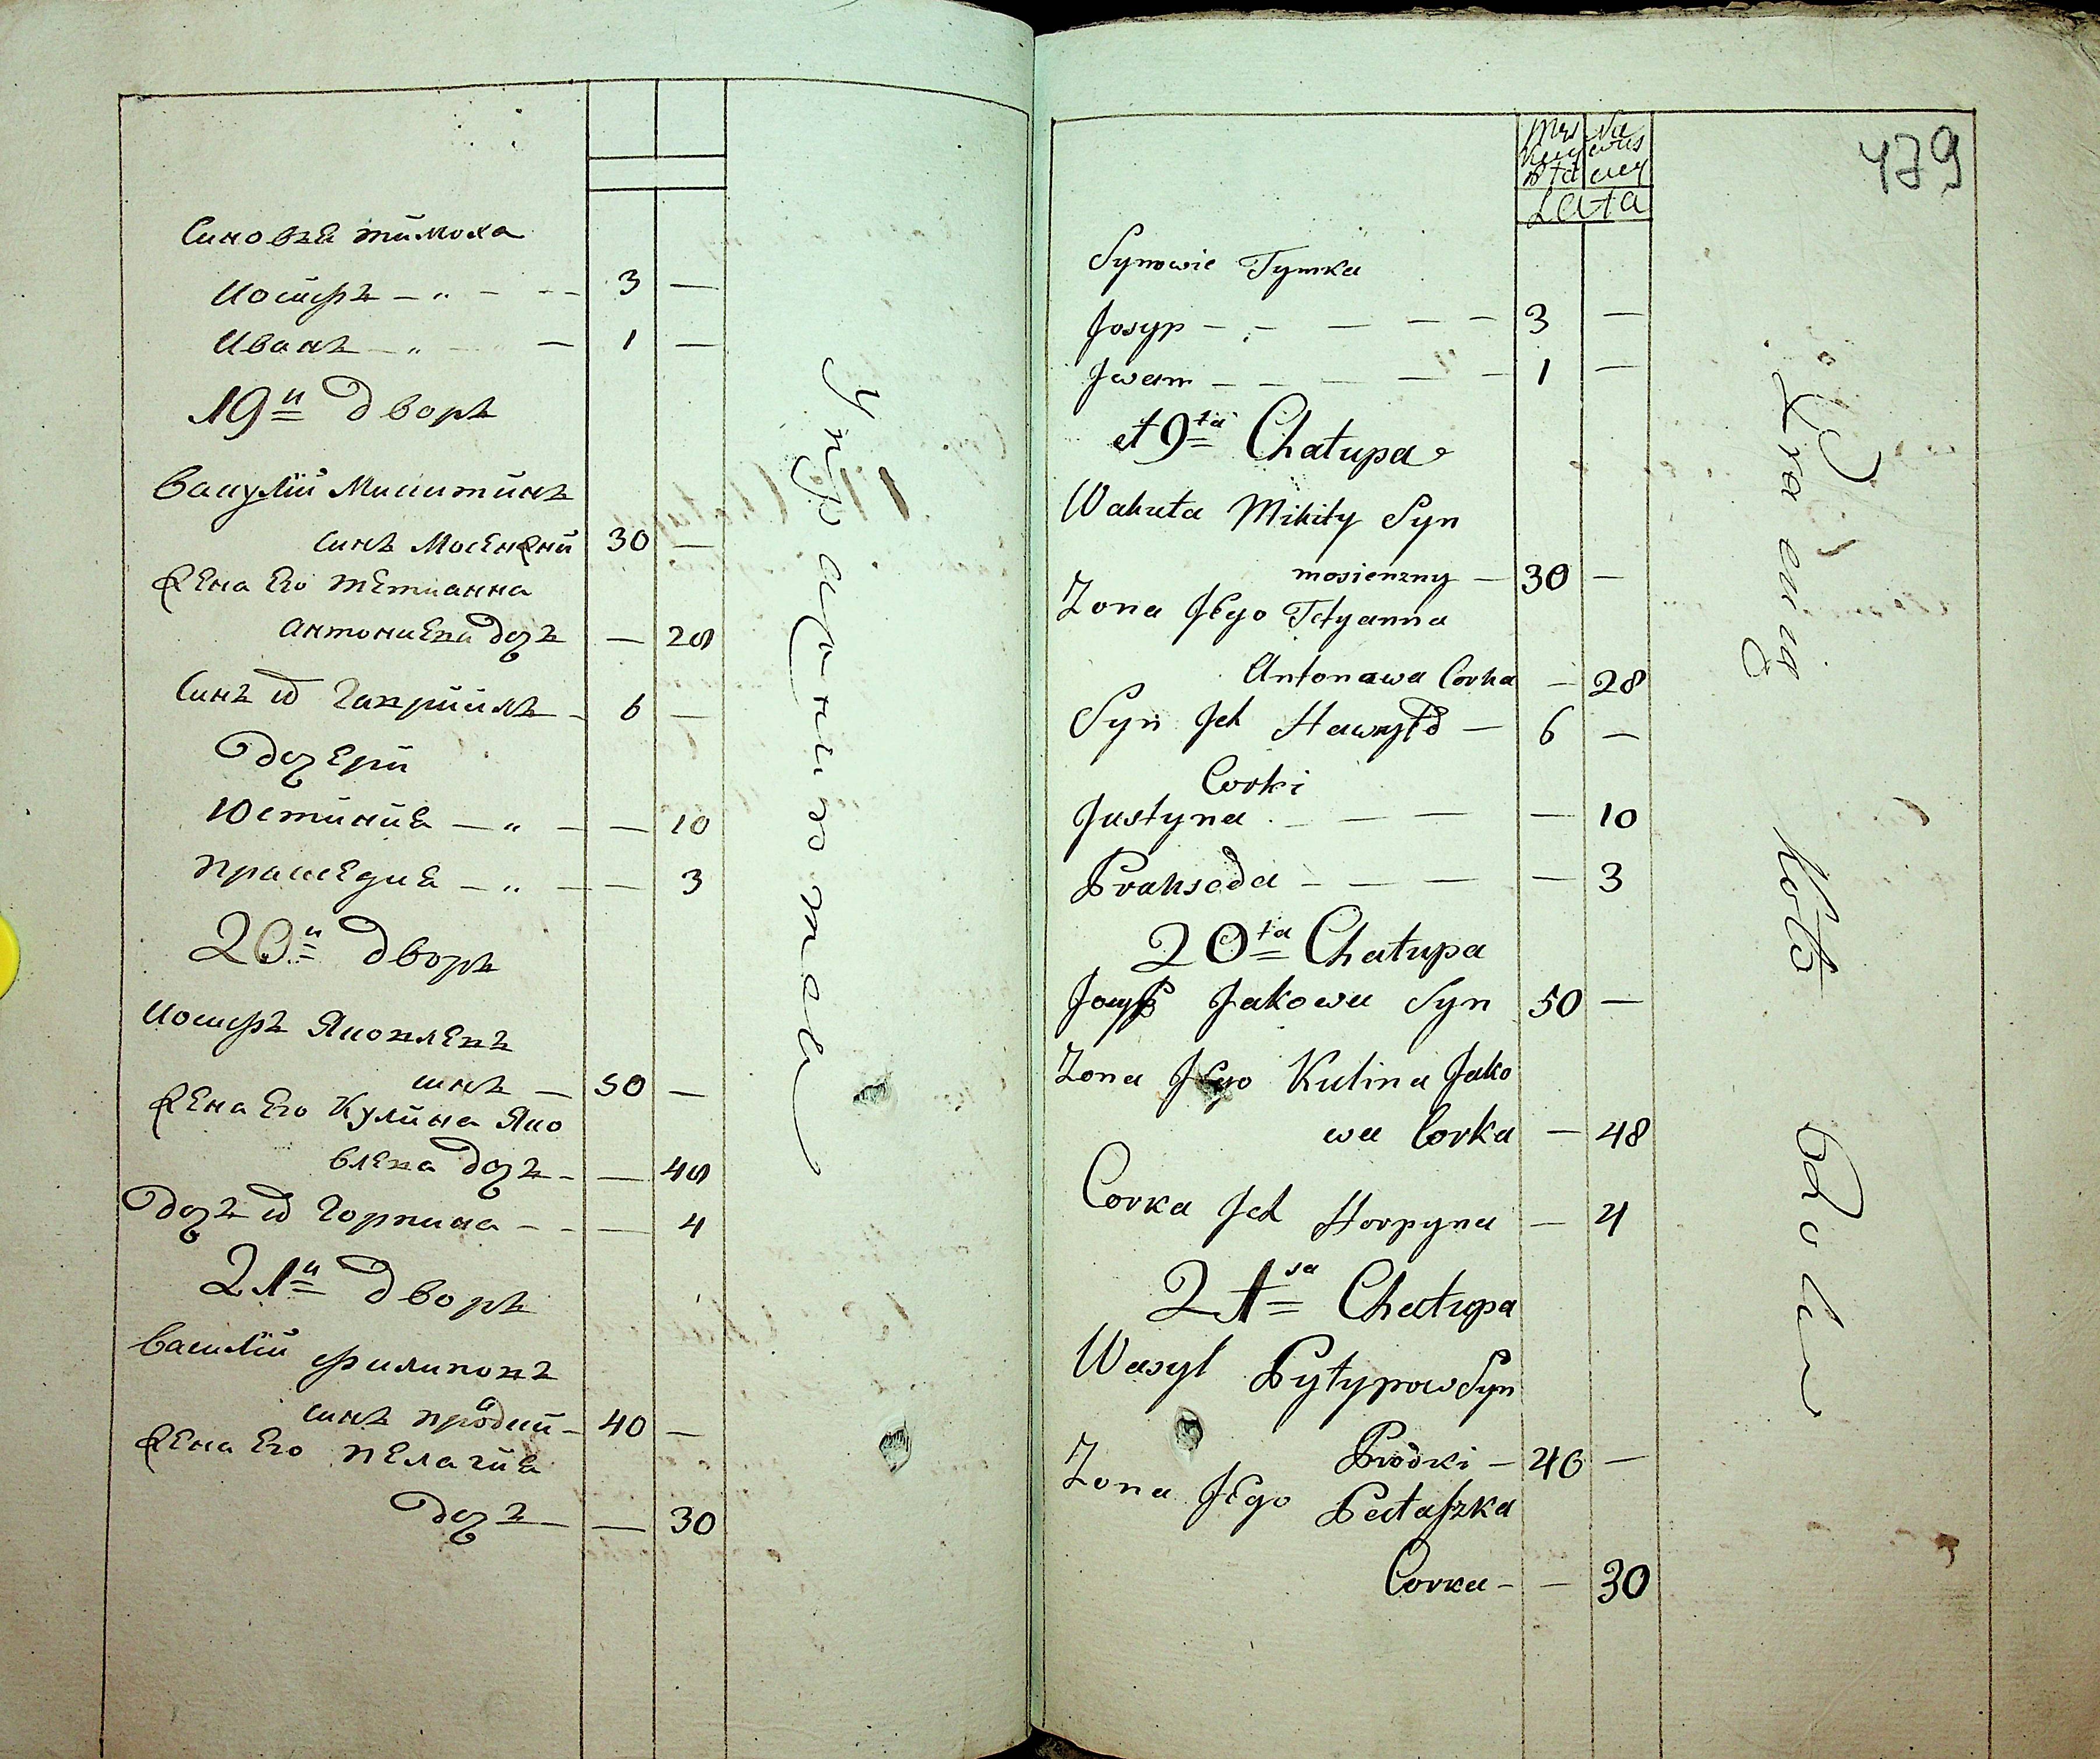 Синовѣ тимоха
Иосифъ — „ — 3 —
Иванъ — „ — 1 —
19й дворъ
Вакулій Микитинъ
синъ Мосензний 30 —
жена Его тетианна
антониева дочъ — 28
Синъ их Гавриилъ — 6 —
дочери
Юстиния — „ — — 10
пракседия — „ — — 3
20й дворъ
Иосифъ Яковлевъ
синъ — 50 —
жена Его Кулина Яко
влева дочъ — — 48
дочъ их Горпина — — 4
21й дворъ
Василій филиповъ
синъ продки — 40 —
жена Его пелагия
дочъ — — 30
Упражнита
479
Mez Na
Lata
Synowie Tymka
Josyp — — — — 3 —
Jwan — — — — 1 —
19ta Chałupa
Wakuła Mikity Syn
mosienzny — 30 —
Zona Jego Tetyanna
Antonawa Corka — 28
Syn Jch Hawryło — 6 —
Corki
Justyna — — — — 10
Prakseda — — — — 3
20ta Chałupa
Josyp Jakowa Syn 50 —
Zona Jego Kulina Jako
wa Corka — 48
Corka Jch Horpyna — 4
21sa Chałupa
Wasyl Pyłypow Syn
Prodki — 40 —
Zona Jego Pałaszka
Corka — — 30